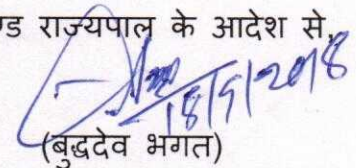 ण्ड राज्यपाल के आदेश से,
18/9/2018
(बुद्धदेव भगत)